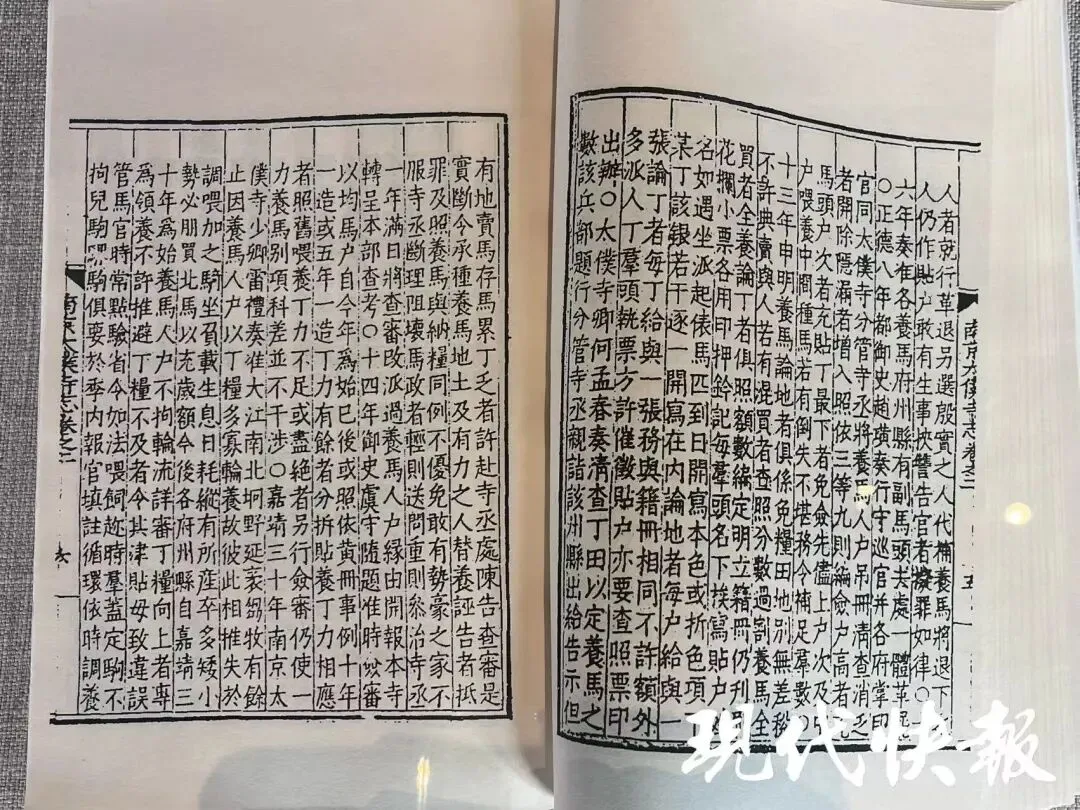 人者就行革退另選殷實之人代補養馬將退下之
人仍作貼户敢有生事快讐告官者發罪如律○十
六年奏准各養馬府州縣有副馬頭去處一體革罷
○正德八年都御史趙璜奏行守巡官并各府掌印
官同太僕寺分管寺丞將養馬人户吊冊清查消乏
者開除隱漏者增入照依三等九則編僉户高者充
馬頭户次者充貼丁最下者免僉先儘上户次及中
户喂養中間種馬若有倒失不堪務令補足羣數○
十三年申明養馬論地者俱係免糧田地別無差稅
不許典賣與人若有混買者查照分數過割養馬全
買者全養論丁者俱照額數編定明立籍冊仍刊
花欄小票各用印押鈐記每羣頭名下挨寫貼户
名如遇坐派起俵馬匹到日開寫本色或折色項
某丁該銀若干逐一開寫在内論地者每户給與一
張論丁者每丁給與一張務與籍冊相同不許額外
多派人丁羣頭執票方許催徵貼户亦要查照票印
出辦○太僕寺卿何孟春奏清查丁田以定養馬之
數該兵部題行分管寺丞親詣該州縣出給告示但
南京太僕寺志卷之二
五
有地賣馬存馬累丁乏者許赴寺丞處陳告查審是
實斷令承種養馬地土及有力之人替養誣告者抵
罪及照養馬與納糧同例不優免敢有勢豪之家不
服寺丞斷理阻壞馬政者輕則送問重則叅治寺丞
一年滿日將查審改派過養馬人户緣由開報本寺
轉呈本部查考○十四年御史虞守隨題准時加審
以均馬户自今年爲始已後或照依黄冊事例十年
一造或五年一造丁力有餘者分拆貼養丁力相應
者照舊喂養丁力不足或盡絶者另行僉審仍使一
力養馬別項科差並不干涉○嘉靖三十年南京太
僕寺少卿雷禮奏准大江南北坰野延袤芻牧有餘
止因養馬人户以丁糧多寡輪養故彼此相推失於
調喂加之騎坐負載生息日耗縱有所産卒多矮小
勢必朋買北馬以充歲額今後各府州縣自嘉靖三
十年爲始養馬人户不拘輪流詳審丁糧向上者專
爲領養不許推避丁糧不及者令其津貼毋致違誤
管馬官時常點驗省令如法喂飼趂時羣蓋定駒不
拘兒駒騍駒俱要於季内報官填註循環依時調養
南京太僕寺志卷之二
現代快報